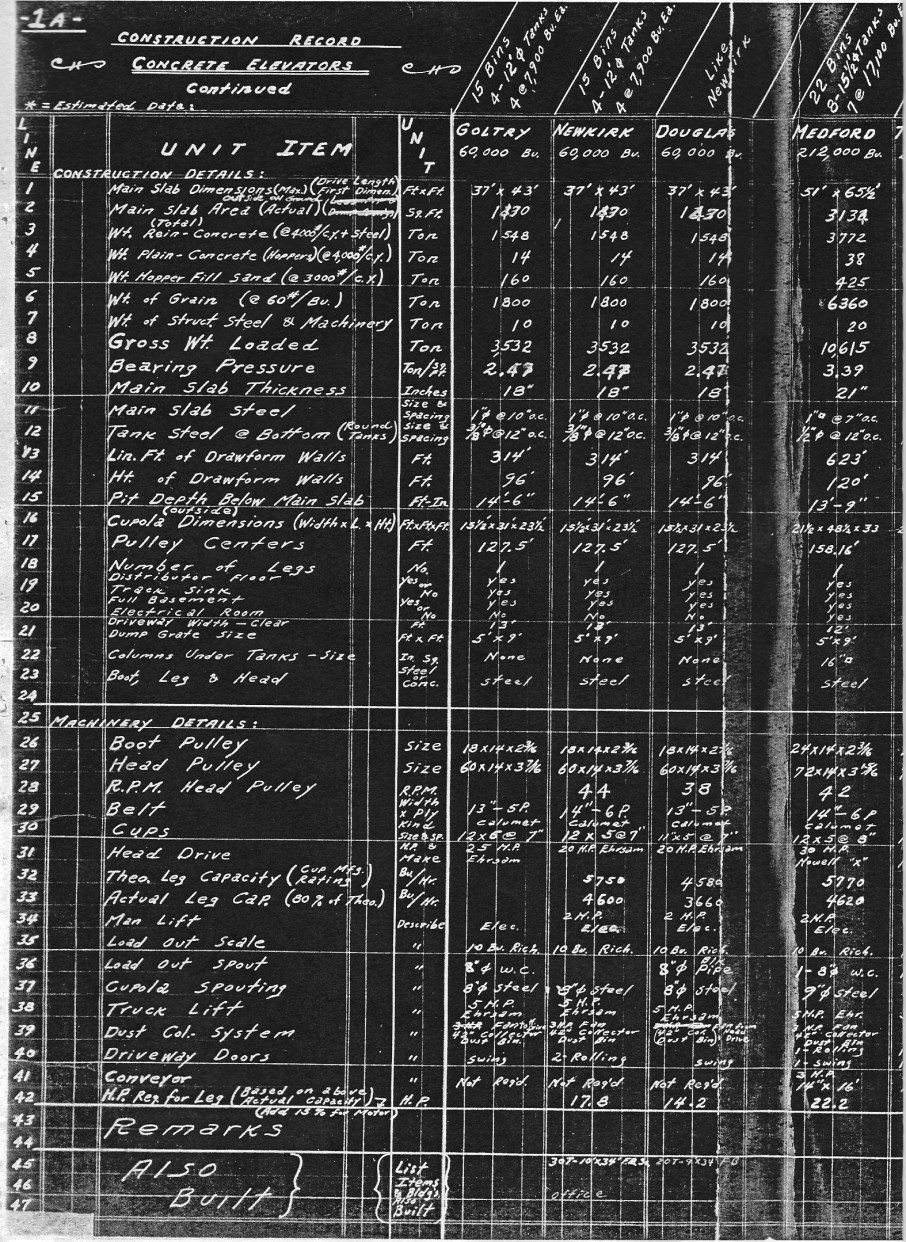 -1A-
CONSTRUCTION RECORD
CONCRETE ELEVATORS
Continued
* = Estimated Data:
15 Bins 4-12'φ Tanks 4 @ 7,900 Bu. Ea.
15 Bins 4-12'φ Tanks 4 @ 7,900 Bu. Ea.
Like Newkirk
22 Bins 8-15½'φ Tanks 7 @ 17,100 Bu. Ea.
LINE UNIT ITEM UNIT GOLTRY NEWKIRK DOUGLAS MEDFORD
60,000 Bu. 60,000 Bu. 60,000 Bu. 212,000 Bu.
CONSTRUCTION DETAILS:
1 Main Slab Dimensions (Max.) (Drive Length) (First Dimen.) Ft x Ft. 37' x 43' 37' x 43' 37' x 43' 51' x 65½'
2 Main Slab Area (Actual) Outside on Ground Sq. Ft. 1430 1430 1430 3134
3 (Total) Wt. Rein-Concrete (@4000#/c.y. + Steel) Ton 1548 1548 1548 3772
4 Wt. Plain-Concrete (Hoppers) (@4,000#/c.y.) Ton 14 14 14 38
5 Wt. Hopper Fill Sand (@ 3000#/c.y.) Ton 160 160 160 425
6 Wt. of Grain (@ 60#/Bu.) Ton 1800 1800 1800 6360
7 Wt of Struct. Steel & Machinery Ton 10 10 10 20
8 Gross Wt. Loaded Ton 3532 3532 3532 10,615
9 Bearing Pressure Ton/Sq. Ft. 2.47 2.47 2.47 3.39
10 Main Slab Thickness Inches 18" 18" 18" 21"
11 Main Slab Steel Size & Spacing 1"φ @ 10" o.c. 1"φ @ 10" o.c. 1"φ @ 10" o.c. 1"▫ @ 7" o.c.
12 Tank Steel @ Bottom (Round Tanks) Size & Spacing 3/8"φ @ 12" o.c. 3/8"φ @ 12" o.c. 3/8"φ @ 12" o.c. ½"φ @ 12" o.c.
13 Lin. Ft of Drawform Walls Ft. 314' 314' 314' 623'
14 Ht. of Drawform Walls Ft. 96' 96' 96' 120'
15 Pit Depth Below Main Slab Ft-In 14'-6" 14'-6" 14'-6" 13'-9"
16 (outside) Cupola Dimensions (Width x L x Ht) Ft x Ft x Ft 15½x31x23½ 15½x31x23½ 15½x31x23½ 21½ x 48½ x 33
17 Pulley Centers Ft. 127.5' 127.5' 127.5' 158.16'
18 Number of Legs No. 1 1 1 1
19 Distributor Floor Yes or No yes yes yes yes
Track Sink yes yes yes yes
20 Full Basement Yes or No yes yes yes yes
Electrical Room No No No yes
21 Driveway Width - Clear Ft 13' 13' 13' 12'
Dump Grate Size Ft x Ft 5' x 9' 5' x 9' 5' x 9' 5' x 9'
22 Columns Under Tanks - Size In. Sq. None None None 16"▫
23 Boot, Leg & Head Steel or Conc. Steel Steel Steel Steel
24
25 MACHINERY DETAILS:
26 Boot Pulley Size 18x14x2 3/16 18x14x2 3/16 18x14x2 3/16 24x14x2 3/16
27 Head Pulley Size 60x14x3 7/16 60x14x3 7/16 60x14x3 7/16 72x14x3 15/16
28 R.P.M. Head Pulley R.P.M. 44 38 42
29 Belt Width x Ply 13"-5P. 14"-6P. 13"-5P. 14"-6P
Kind Calumet Calumet Calumet Calumet
30 Cups Size & Sp. 12x6 @ 7" 12x5 @ 7" 11x5 @ 7" 12x5 @ 8"
31 Head Drive H.P. & Make 25 H.P. Ehrsam 20 H.P. Ehrsam 20 H.P. Ehrsam 30 H.P. Howell "x"
32 Theo. Leg Capacity (Cup Mfg. Rating) Bu/Hr. 5750 4580 5770
33 Actual Leg Cap. (80% of Theo.) Bu/Hr. 4600 3660 4620
34 Man Lift Describe Elec. 2 H.P. Elec. 2 H.P. Elec. 2 H.P. Elec.
35 Load Out Scale " 10 Bu. Rich. 10 Bu. Rich. 10 Bu. Rich. 10 Bu. Rich.
36 Load Out Spout " 8"φ W.C. 8"φ Pipe 1-8"φ W.C.
37 Cupola Spouting " 8"φ Steel 8"φ Steel 8"φ Steel 9"φ Steel
38 Truck Lift " 5 H.P. Ehrsam 5 H.P. Ehrsam 5 H.P. Ehrsam 5 H.P. Ehr.
39 Dust Col. System " 42" Collector Dust Bin 3 H.P. Fan 42" Collector Dust Bin 42" Col. (Dust Bin) Drive Fan Collector Dust Bin
40 Driveway Doors " Swing 2-Rolling Swing 1-Rolling 1-Swing
41 Conveyor " Not Req'd. Not Req'd. Not Req'd. 3 H.P. 14" x 16'
42 H.P. Req. for Leg (Based on above Actual Capacity) H.P. 17.8 14.2 22.2
(Add 15% for Motor)
43 Remarks
44
45 ALSO List 30T-10'x34' 20T-9'x34'
46 Built Items & Bldgs. office
47 Also Built